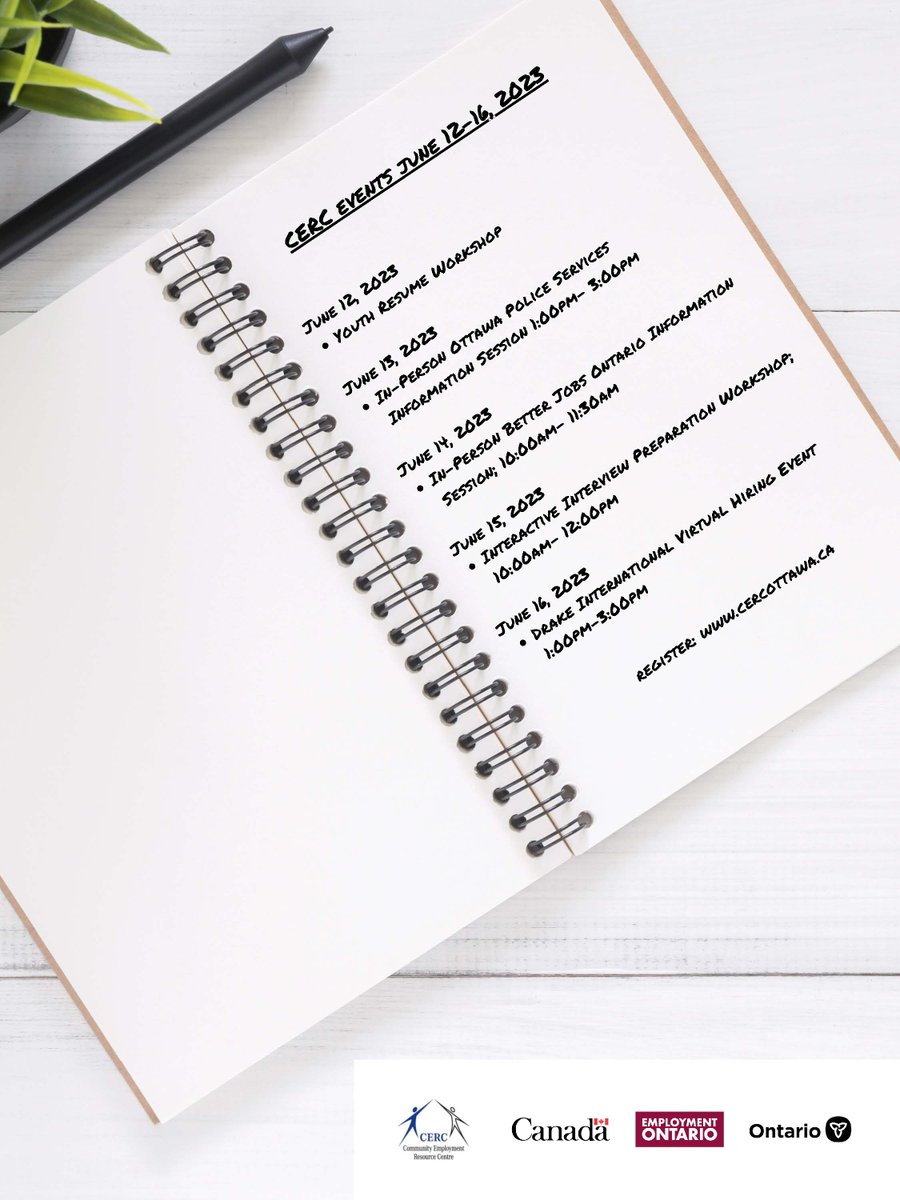 CERC EVENTS JUNE 12-16, 2023
June 12, 2023
• Youth Resume Workshop
June 13, 2023
• In-Person Ottawa Police Services
Information Session 1:00pm- 3:00pm
June 14, 2023
• In-Person Better Jobs Ontario Information
Session; 10:00am- 11:30am
June 15, 2023
• Interactive Interview Preparation Workshop;
10:00am- 12:00pm
June 16, 2023
• Drake International Virtual Hiring Event
1:00pm-3:00pm
register: www.cercottawa.ca
CERC
Community Employment
Resource Centre
Canada
EMPLOYMENT
ONTARIO
Ontario